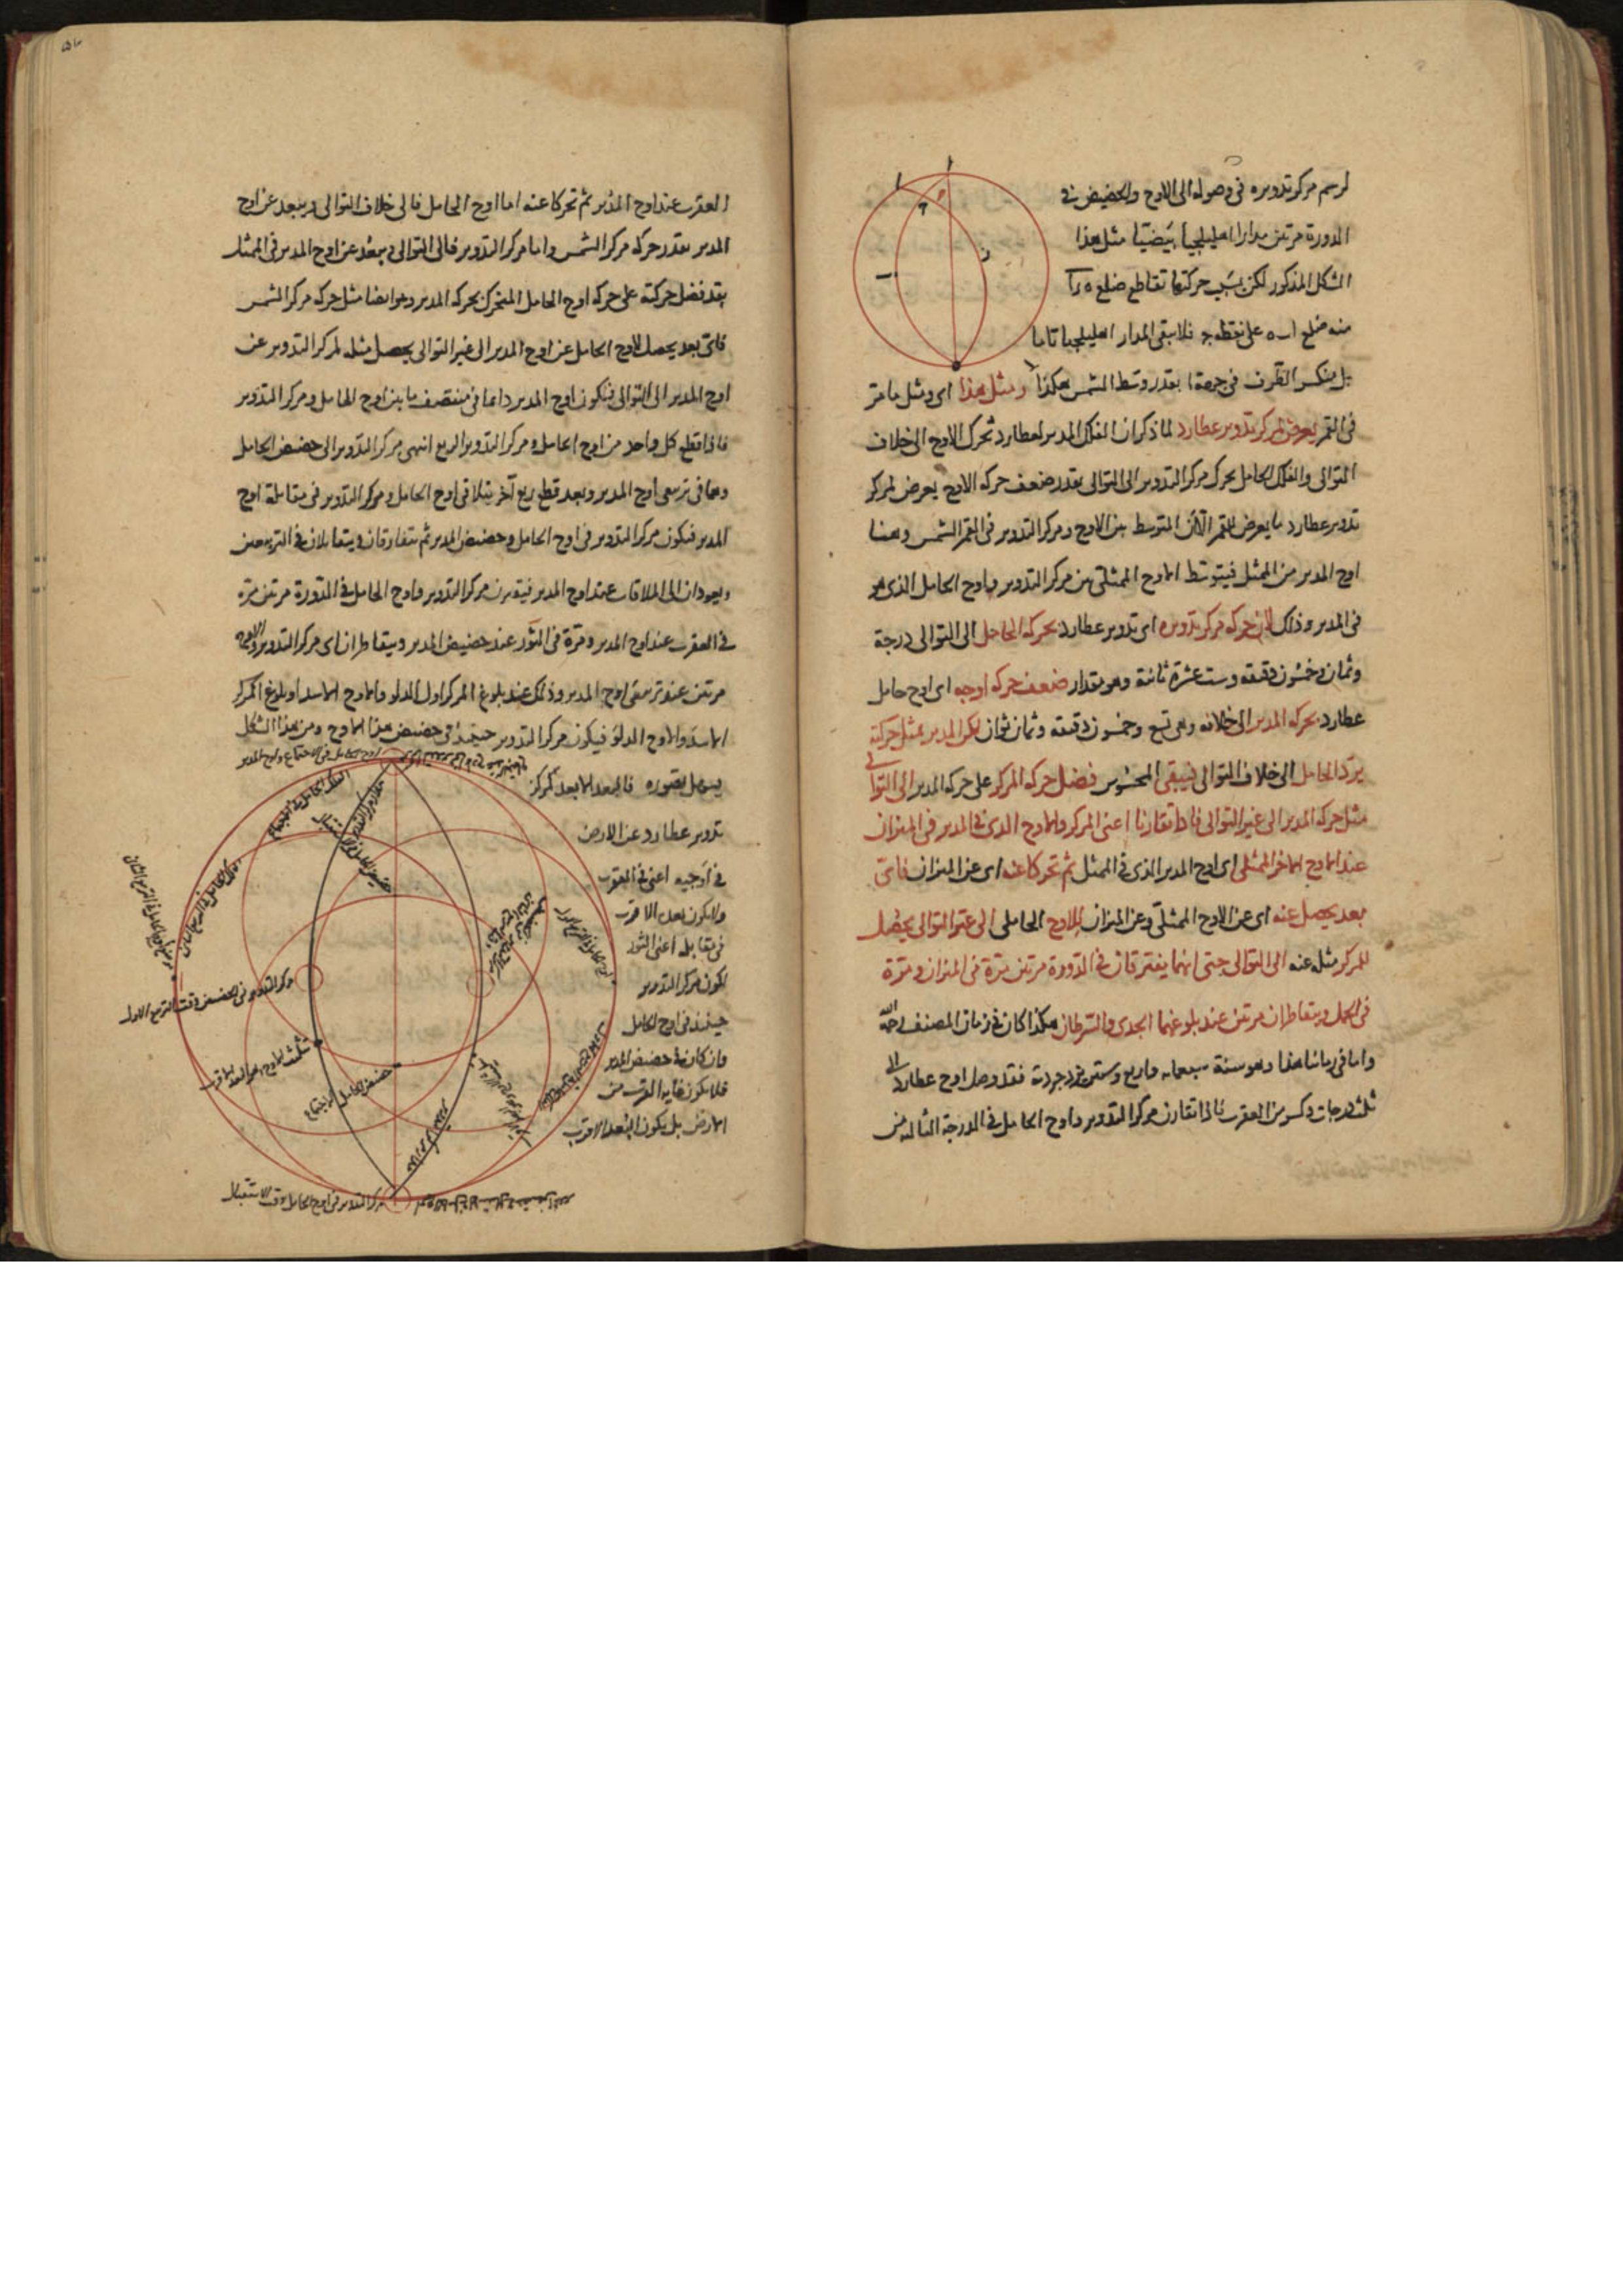 لرسم مركز تدويره فى وصوله الى الاوج والحضيض فى
الدورة مرتين مدارا اهليلجيا بيضيا مثل هذا
الشكل المذكور لكن بسبب حركتها تقاطع ضلع
منه ضلع على نقطة فلا يبقى المدار اهليلجيا تاما
بل ينكسر الطرف فى جهة ا بقدر وسط الشمس هكذا ومثل هذا اى ومثل ما مر
فى القمر يعرض لمركز تدوير عطارد لما ذكر ان الفلك المدير لعطارد تحرك الاوج الى خلاف
التوالى والفلك الحامل يحرك مركز التدوير الى التوالى بقدر ضعف حركة الاوج يعرض لمركز
تدوير عطارد ما يعرض للقمر الا ان المتوسط بين الاوج ومركز التدوير فى القمر الشمس وههنا
اوج المدير من الممثل فيتوسط الاوج الممثلى بين مركز التدوير واوج الحامل الذى هو
فى المدير وذلك لان حركة مركز تدويره اى تدوير عطارد بحركة الحامل الى التوالى درجة
وثمان وخمسون دقيقة وست عشرة ثانية وهو مقدار ضعف حركة اوجه اى اوج حامل
عطارد بحركة المدير الى خلافه وهى تسع وخمسون دقيقة وثمان ثوان لكن المدير بمثل حركته
يرد الحامل الى خلاف التوالى فيبقى المحسوس فضل حركة المركز على حركة المدير الى التوالى
مثل حركة المدير الى غير التوالى فاذا تقارنا اعنى المركز والاوج الذى فى المدير فى الميزان
عند الاوج الآخر الممثلى اى اوج المدير الذى فى الممثل ثم تحركا عنه اى عن الميزان فاىّ
بعد يحصل عنه اى عن الاوج الممثلى وعن الميزان للاوج الحاملى الى غير التوالى يحصل
للمركز مثله عنه الى التوالى حتى انهما يفترقان فى الدورة مرتين مرة فى الميزان ومرة
فى الحمل ويتقاطران مرتين عند بلوغهما الجدى والسرطان هكذا كان فى زمان المصنف رحمه الله
واما فى زماننا هذا وهو سنة سبعمائة واربع وستين يزدجردية فقد وصل اوج عطارد الى
ثلث درجات وكسر من العقرب فاذا تقارن مركز التدوير واوج الحامل فى الدرجة الثالثة من
العقرب عند اوج المدير ثم تحركا عنه اما اوج الحامل فالى خلاف التوالى ويبعد عن اوج
المدير بقدر حركة مركز الشمس واما مركز التدوير فالى التوالى ويبعد عن اوج المدير فى الممثل
بقدر فضل حركته على حركة اوج الحامل المتحرك بحركة المدير وهو ايضا مثل حركة مركز الشمس
فاى بعد يحصل لاوج الحامل عن اوج المدير الى غير التوالى يحصل مثله لمركز التدوير عن
اوج المدير الى التوالى فيكون اوج المدير دائما فى منتصف ما بين اوج الحامل ومركز التدوير
فاذا قطع كل واحد من اوج الحامل ومركز التدوير الربع انتهى مركز التدوير الى حضيض الحامل
وهما فى تربيعى اوج المدير وبعد قطع ربع آخر يتلاقى اوج الحامل ومركز التدوير فى مقابلة اوج
المدير فيكون مركز التدوير فى اوج الحامل وحضيض المدير ثم يتفارقان ويتقابلان فى التربيعين
ويعودان الى الملاقات عند اوج المدير فيقترن مركز التدوير واوج الحامل فى الدورة مرتين مرة
فى العقرب عند اوج المدير ومرة فى الثور عند حضيض المدير ويتقاطران اى مركز التدوير والاوج
مرتين عند تربيعى اوج المدير وذلك عند بلوغ المركز اول الدلو والاوج الاسد او بلوغ المركز
الاسد والاوج الدلو فيكون مركز التدوير حينئذ فى حضيض هذا الاوج ومن هذا الشكل
يسهل تصوره فالبعد الابعد لمركز
تدوير عطارد عن الارض
فى اوجيه اعنى فى العقرب
ولا يكون بعده الاقرب
فى مقابله اعنى الثور
لكون مركز التدوير
حينئذ فى اوج الحامل
وان كان فى حضيض المدير
فلا يكون غاية القرب من
الارض بل يكون البعد الاقرب
مركز التدوير فى الحضيض وقت التربيع الاول
حضيض الحامل فى الاجتماع
مركز التدوير فى اوج الحامل وقت الاستقبال